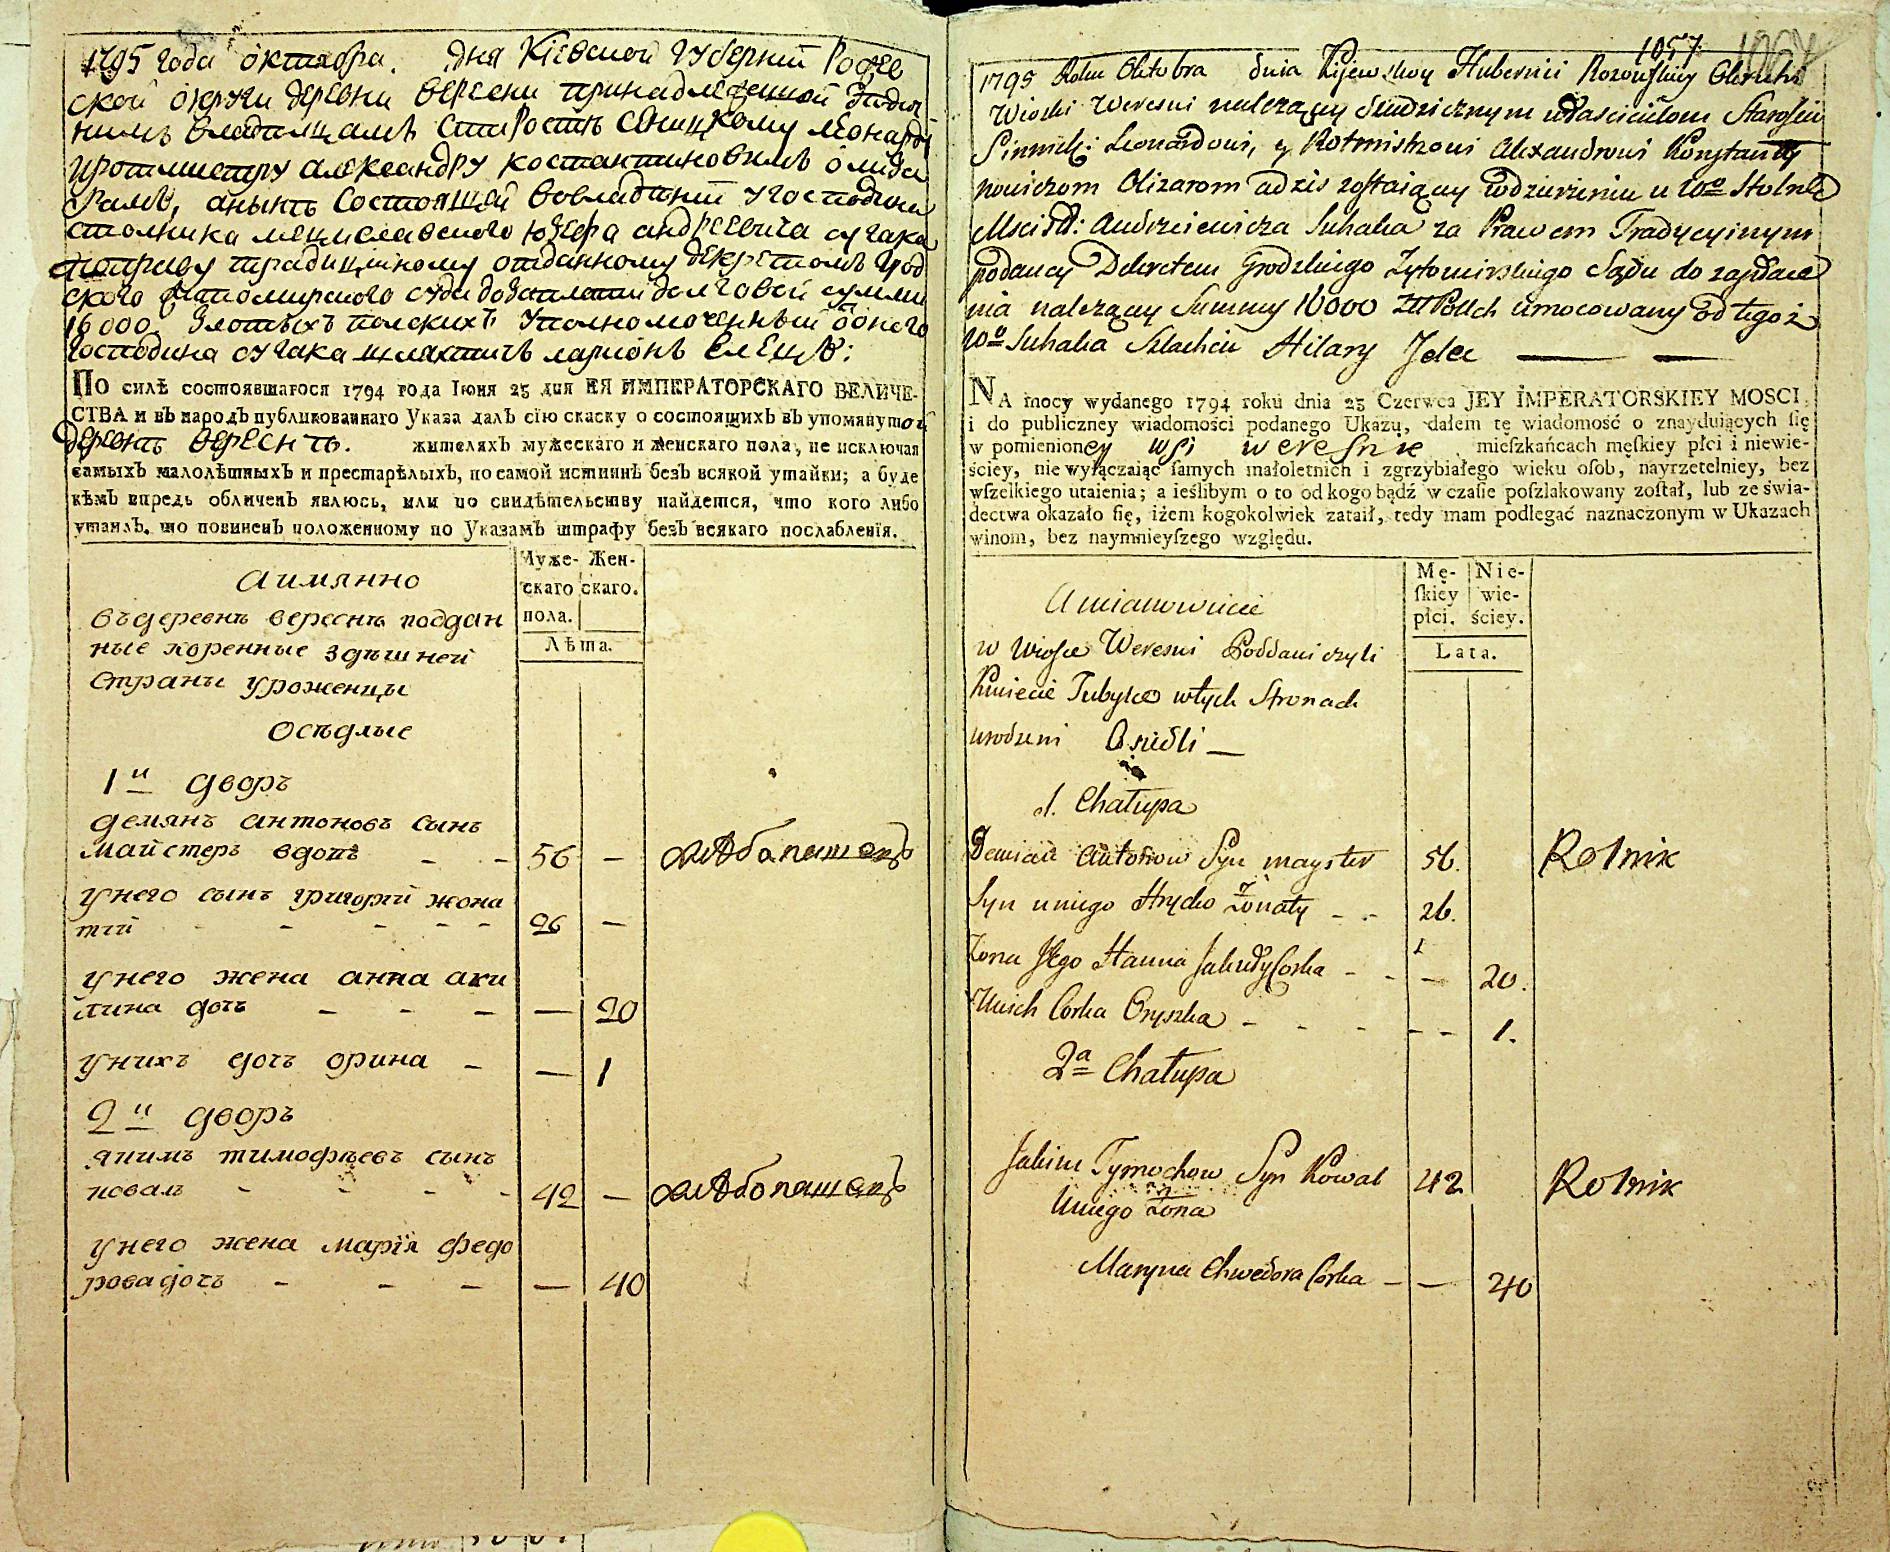 1795 года октября. дня Кіевской Губерніи
ской округи деревни Вересни принадлежащой
владѣльцамъ Старостѣ Синицкому Леонарду
Ротмистру Александру Костантиновичамъ Олиза
рамъ, анынѣ Состоящей вовладѣніи Угосподина
столника мсциславского Юзефа андреевича сугака
поправу традиційному отданному декретомъ Грод
ского житомирского суда дозаплати долговой суммы
16000. Злотыхъ полскихъ Уполномоченный
Господина сугака шляхтичъ ларионъ Елецъ:
ПО силѣ состоявшагося 1794 года Іюня 23 дня ЕЯ ИМПЕРАТОРСКАГО ВЕЛИЧЕ-
СТВА и въ народъ публикованнаго Указа далъ сію скаску о состоящихъ въ упомянутой
деревнѣ Вереснѣ. жителяхъ мужескаго и женскаго пола, не исключая
самыхъ малолѣтныхъ и престарѣлыхъ, по самой истиннѣ безъ всякой утайки; а буде
кѣмъ впредь обличенъ явлюсь, или по свидѣтельству найдется, что кого либо
утаилъ, то повиненъ положенному по Указамъ штрафу безъ всякаго послабленія.
Муже- Жен-
скаго скаго.
пола.
Лѣта.
Аимянно
въдеревнѣ вереснѣ поддан
ные коренные здѣшней
страны уроженцы
Осѣдлые
1й дворъ
демянъ антоновъ сынъ
майстеръ вдовъ - - 56 — хлѣбопашецъ
унего сынъ григорій жона
тій - - - - 26 —
унего жена анна аки
лина дочь - - - — 20
унихъ дочь орина - — 1
2й дворъ
якимъ тимофѣевъ сынъ
коваль - - - - 42 — хлѣбопашецъ
унего жена марія федо
рова дочь - - - — 40
1057.
1795 Roku Oktobra dnia Kijewskey Hubernii
Wioski Weresni należący dziedzicznym właścicielom Staroście
Leonardowi, y Rotmistrzowi Alexandrowi Konstanty
nowiczom Olizarom adzis zostaiący
Andrzeiewicza Suhaka za Prawem Tradycyinym
podaney Dekretem Grodzkiego Żytomirskiego Sądu do zapłace
nia należący Summy 16000 umocowany od tegoż
Suhaka Szlachcic Hilary Jelec — —
NA mocy wydanego 1794 roku dnia 23 Czerwca JEY IMPERATORSKIEY MOSCI
i do publiczney wiadomości podanego Ukazu, dałem tę wiadomość o znayduiących ſię
w pomienioney wsi weresnie mieſzkańcach męſkiey płci i niewie-
ściey, nie wyłączaiąc ſamych małoletnich i zgrzybiałego wieku oſob, nayrzetelniey, bez
wſzelkiego utaienia; a ieślibym o to od kogo bądź w czaſie poſzlakowany zoſtał, lub ze świa-
dectwa okazało ſię, iżem kogokolwiek zataił, tedy mam podlegać naznaczonym w Ukazach
winom, bez naymnieyſzego względu.
Mę- Nie-
ſkiey wie-
płci. ściey.
Lata.
Amianowicie
w wiosce Weresni Poddani czyli
Kmiecie Tubylce wtych Stronach
urodzeni Osiedli —
1. Chałupa
Demian Antonow Syn mayster 56. Rolnik
Syn uniego Hrycko Żonaty - - 26.
Żona Jego Hanna Corka - - — 20.
Unich Corka Oryszka - - - - - 1.
2a Chałupa
Jakim Tymochow Syn Kowal 42 Rolnik
Uniego Żona
Maryna Chwedora Corka - — 40